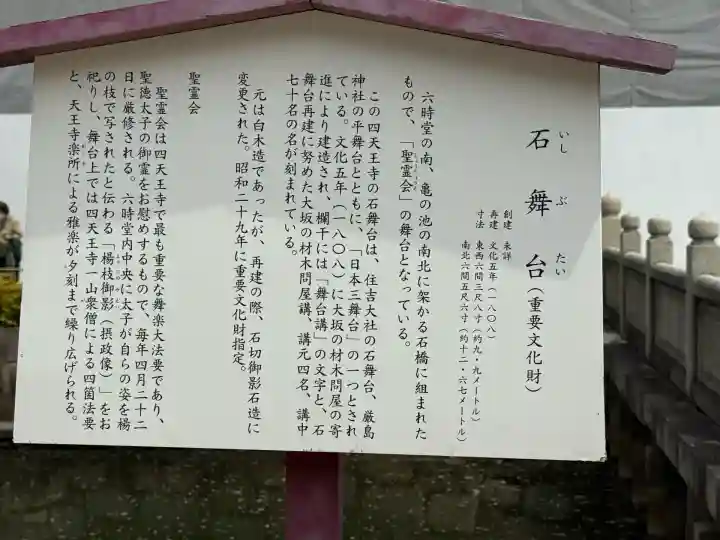 石舞台（重要文化財）
いしぶたい
創建 未詳
再建 文化五年（一八〇八）
寸法 東西六間三尺八寸（約九・九メートル）
南北六間五尺六寸（約十二・六七メートル）
六時堂の南、亀の池の南北に架かる石橋に組まれた
もので、「聖霊会」の舞台となっている。
この四天王寺の石舞台は、住吉大社の石舞台、厳島
神社の平舞台とともに、「日本三舞台」の一つとされ
ている。文化五年（一八〇八）に大坂の材木問屋の寄
進により建造され、欄干には「舞台講」の文字と、石
舞台再建に努めた大坂の材木問屋講、講元四名、講中
七十名の名が刻まれている。
元は白木造であったが、再建の際、石切御影石造に
変更された。昭和二十九年に重要文化財指定。
聖霊会
聖霊会は四天王寺で最も重要な舞楽大法要であり、
聖徳太子の御霊をお慰めするもので、毎年四月二十二
日に厳修される。六時堂内中央に太子が自らの姿を楊
の枝で写されたと伝わる「楊枝御影（摂政像）」をお
祀りし、舞台上では四天王寺一山衆僧による四箇法要
と、天王寺楽所による雅楽が夕刻まで繰り広げられる。